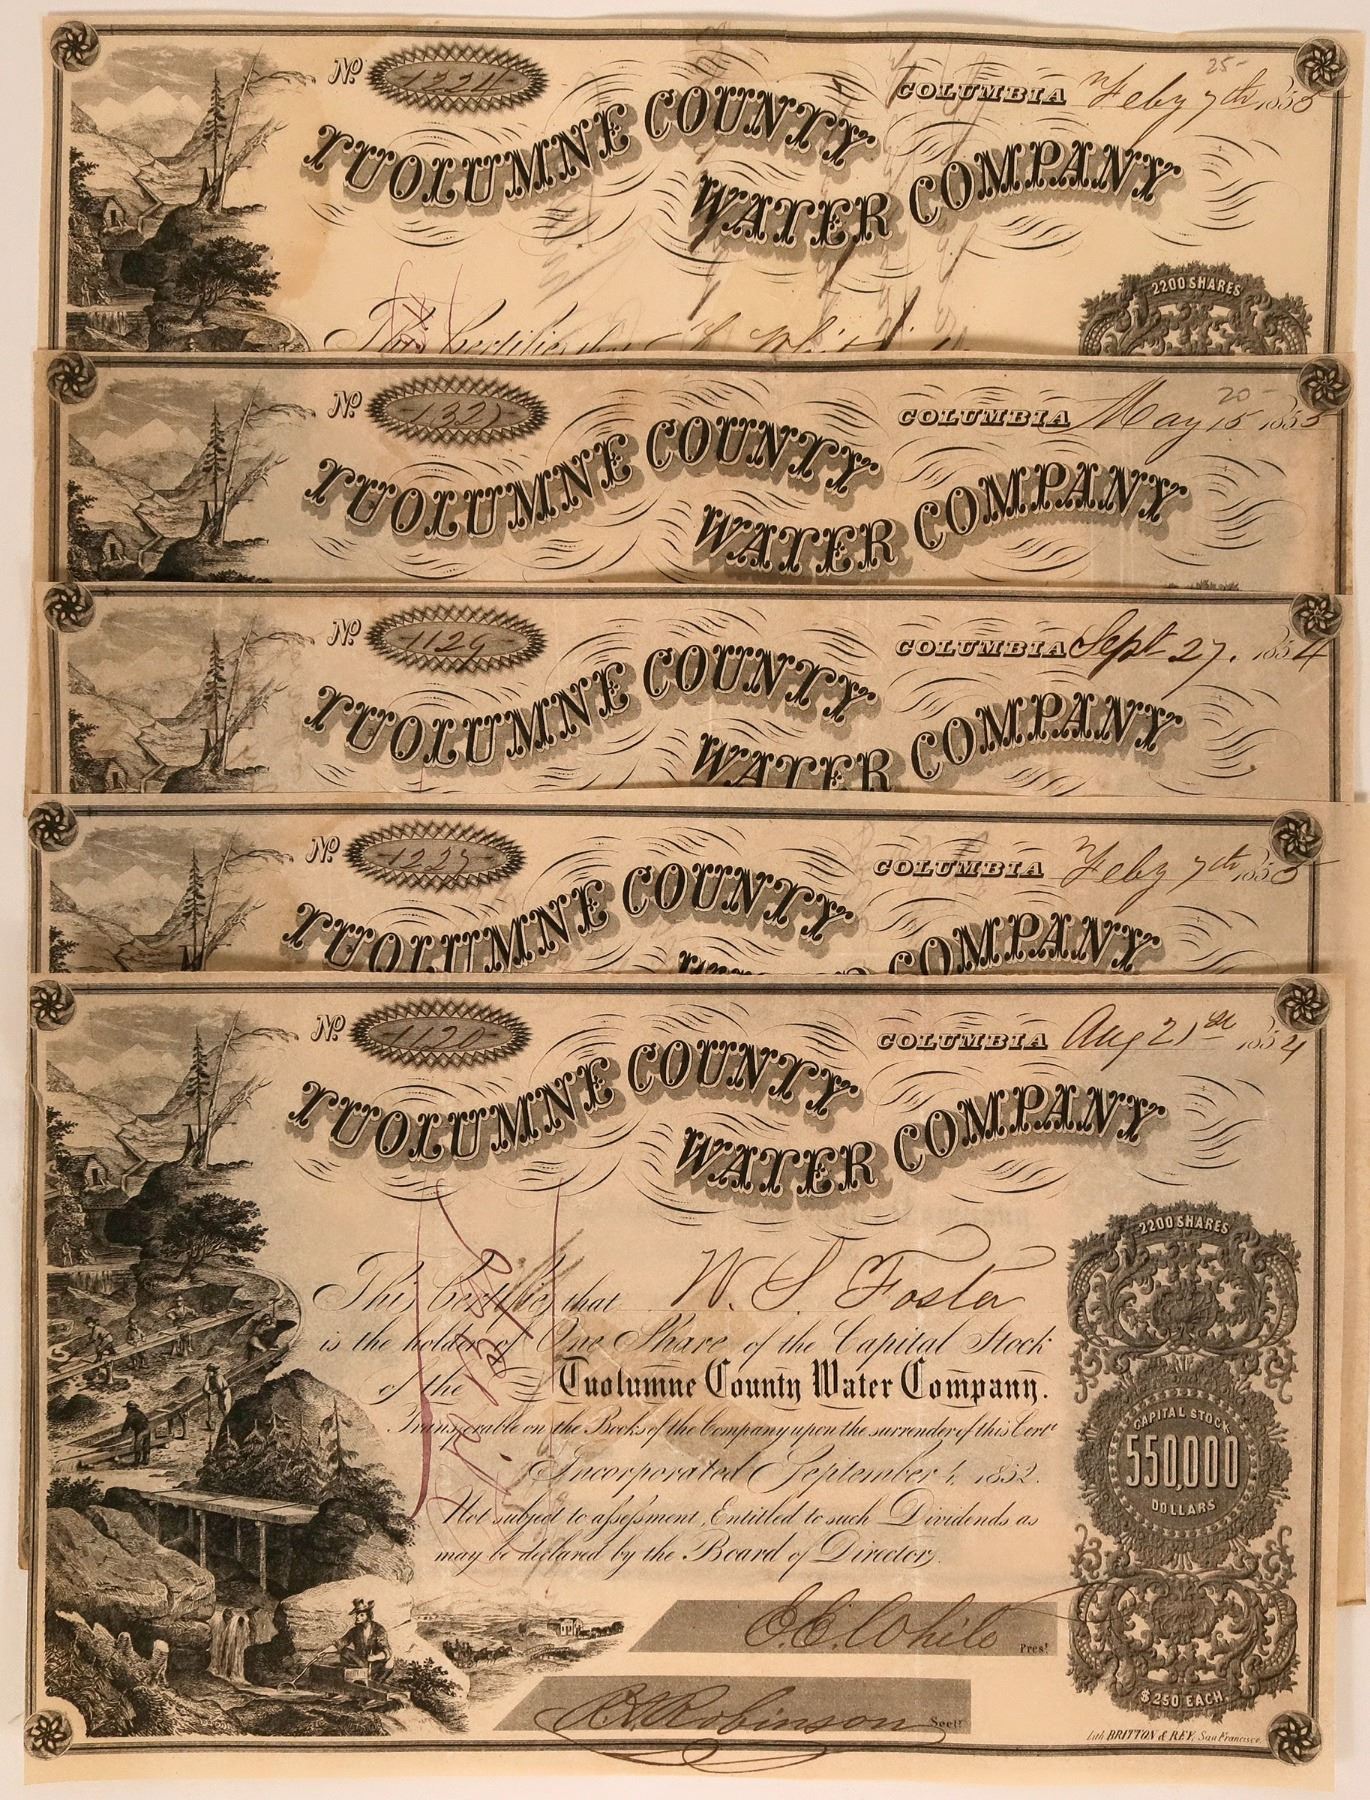 25-
No 1224 COLUMBIA Feby 7th 1855
TUOLUMNE COUNTY
WATER COMPANY
2200 SHARES
This Certifies that
20-
No 132 COLUMBIA May 15 1855
TUOLUMNE COUNTY
WATER COMPANY
No 1129 COLUMBIA Sept 27. 1854
TUOLUMNE COUNTY
WATER COMPANY
No 1227 COLUMBIA Feby 7th 1855
TUOLUMNE COUNTY
WATER COMPANY
No 1120 COLUMBIA Aug 21st 1854
TUOLUMNE COUNTY
WATER COMPANY
2200 SHARES
This Certifies that W. S. Foster
is the holder of One Share of the Capital Stock
of the Tuolumne County Water Company.
Transferable on the Books of the Company upon the surrender of this Cert
Incorporated September 4, 1852.
Not subject to assessment, Entitled to such Dividends as
may be declared by the Board of Directors.
CAPITAL STOCK
550,000
DOLLARS
E. C. White Prest
$250 EACH
R. A. Robinson Secty
Lith BRITTON & REY, San Francisco.